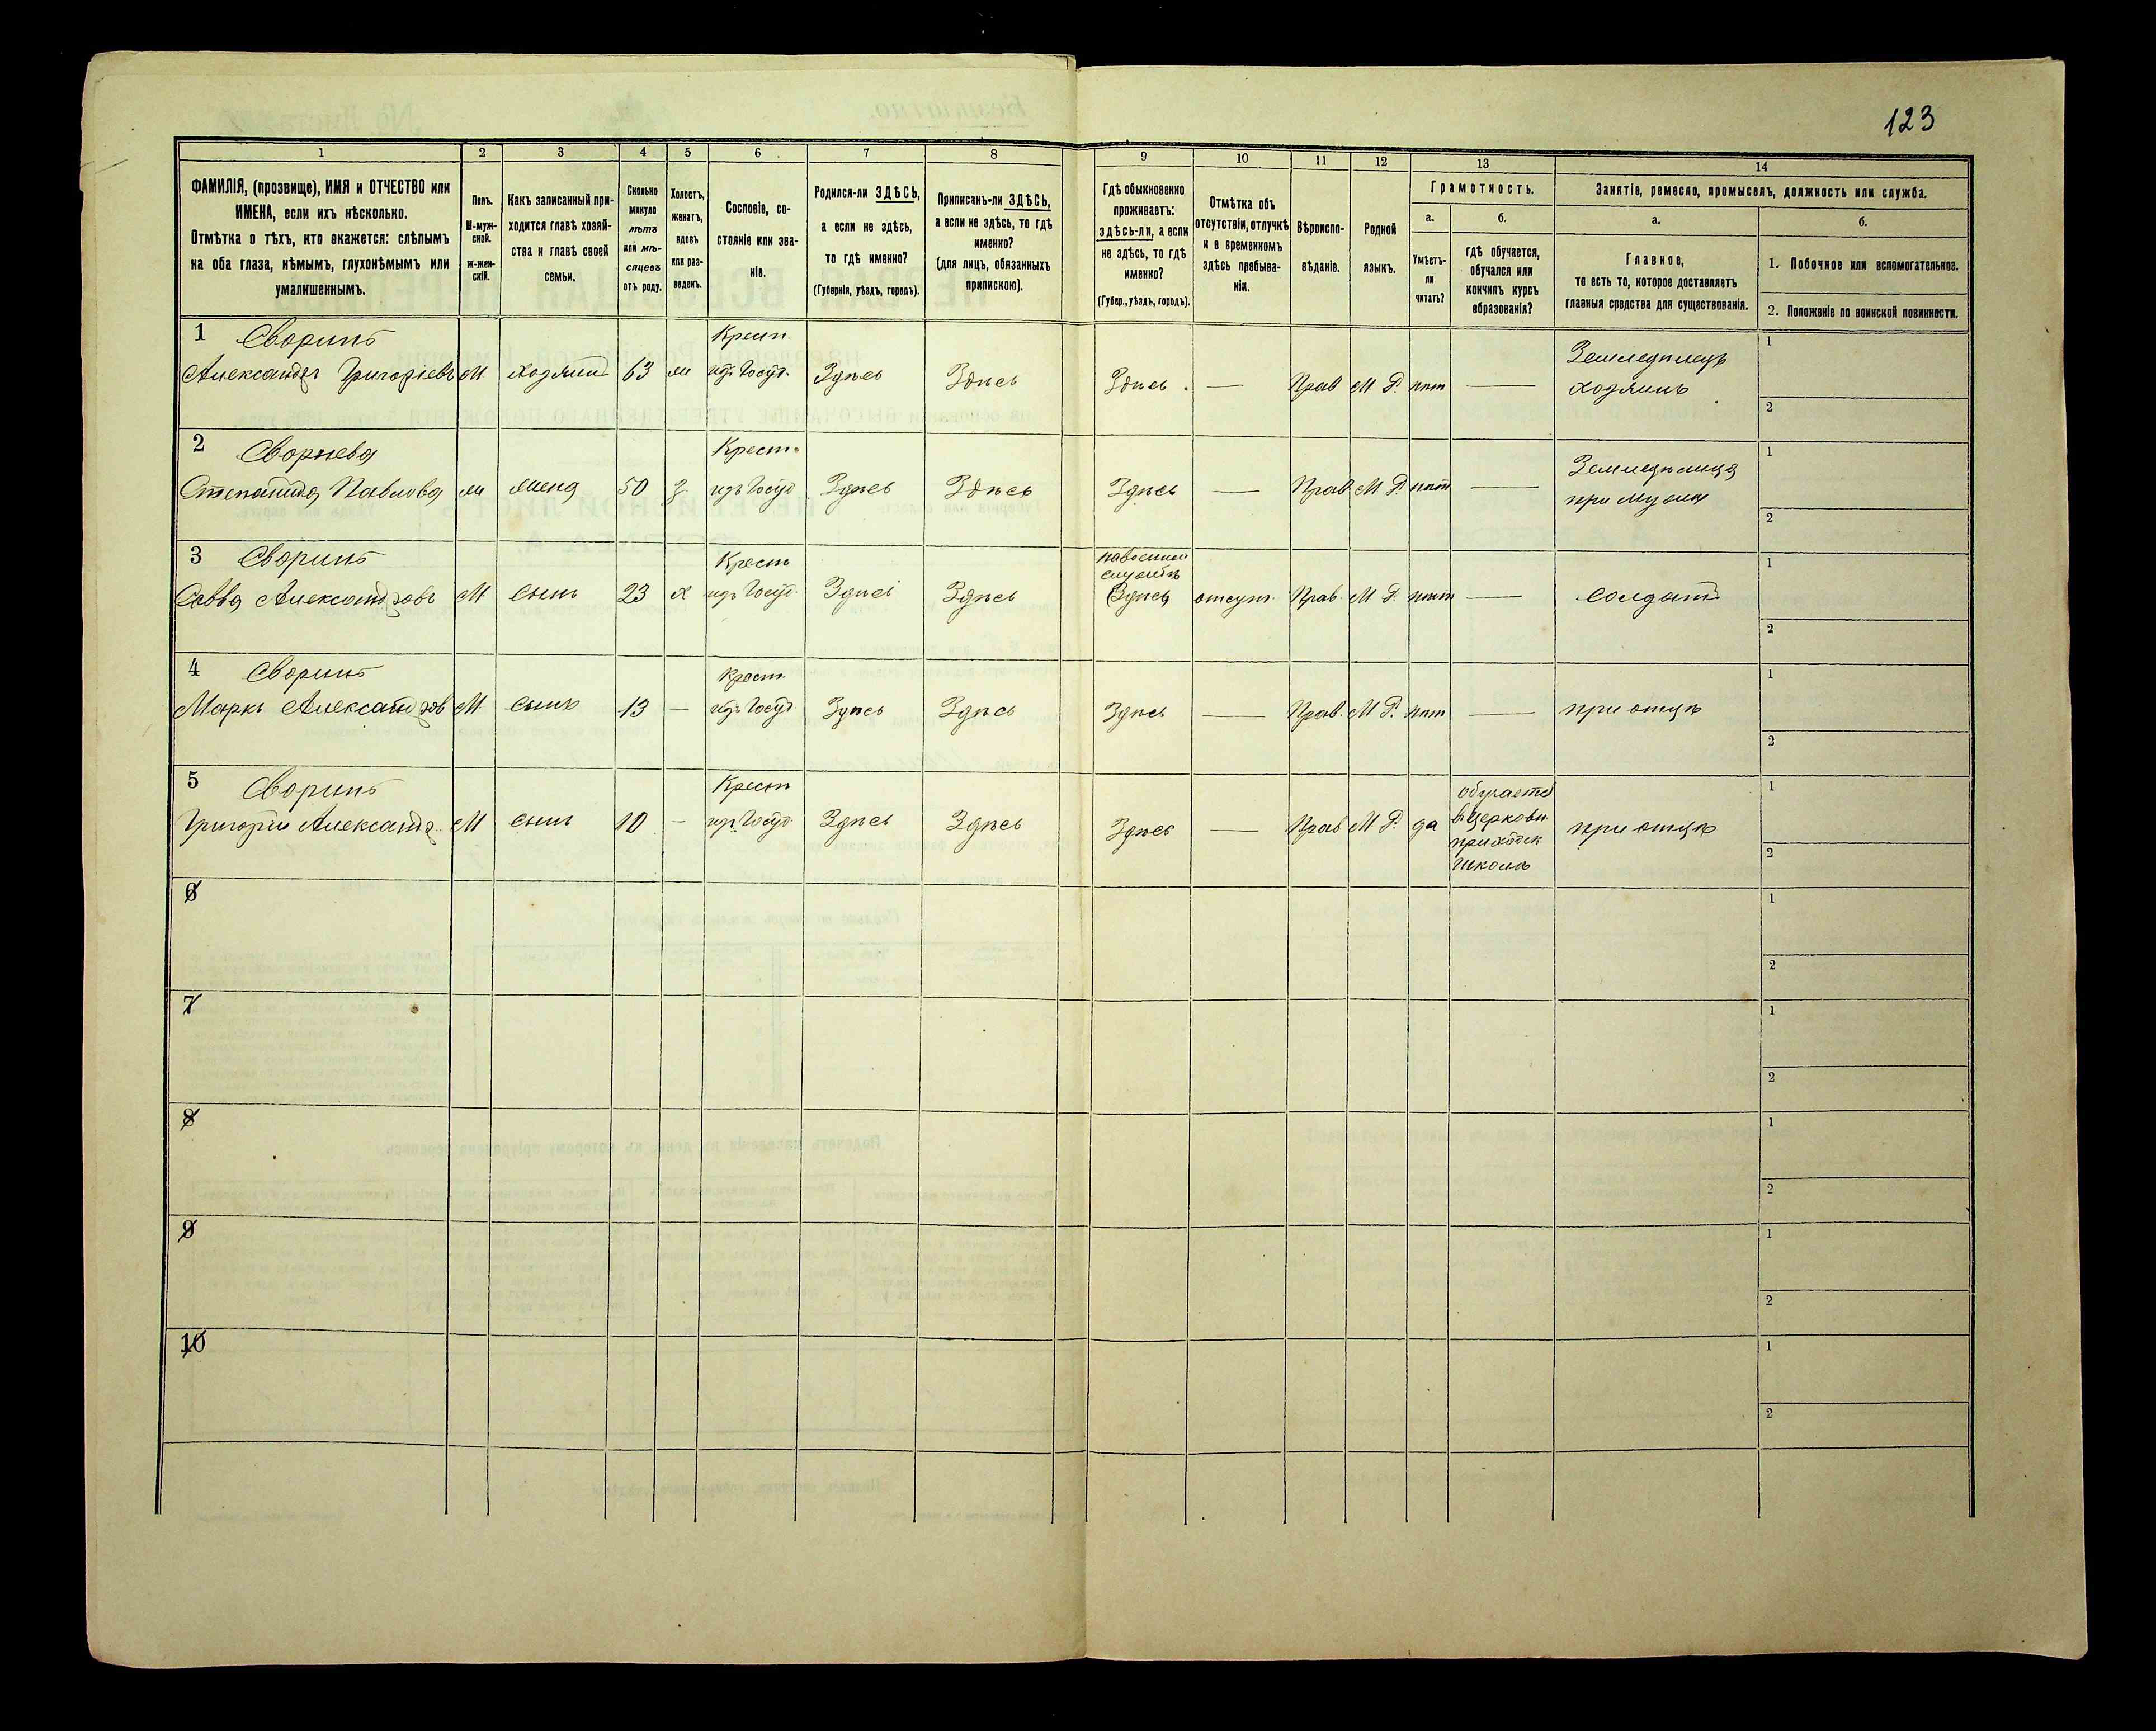 123
1 2 3 4 5 6 7 8 9 10 11 12 13 14
ФАМИЛІЯ, (прозвище), ИМЯ и ОТЧЕСТВО или
ИМЕНА, если ихъ нѣсколько.
Отмѣтка о тѣхъ, кто окажется: слѣпымъ
на оба глаза, нѣмымъ, глухонѣмымъ или
умалишеннымъ.
Полъ.
М-муж-
ской.
ж-жен-
скій.
Какъ записанный при-
ходится главѣ хозяй-
ства и главѣ своей
семьи.
Сколько
минуло
лѣтъ
или мѣ-
сяцевъ
отъ роду.
Холостъ,
женатъ,
вдовъ
или раз-
веденъ.
Сословіе, со-
стояніе или зва-
ніе.
Родился-ли ЗДѢСЬ,
а если не здѣсь,
то гдѣ именно?
(Губернія, уѣздъ, городъ).
Приписанъ-ли ЗДѢСЬ,
а если не здѣсь, то гдѣ
именно?
(для лицъ, обязанныхъ
припискою).
Гдѣ обыкновенно
проживаетъ:
здѣсь-ли, а если
не здѣсь, то гдѣ
именно?
(Губер., уѣздъ, городъ).
Отмѣтка объ
отсутствіи, отлучкѣ
и о временномъ
здѣсь пребыва-
ніи.
Вѣроиспо-
вѣданіе.
Родной
языкъ.
Грамотность.
а.
Умѣетъ-
ли
читать?
б.
гдѣ обучается,
обучался или
кончилъ курсъ
образованія?
Занятіе, ремесло, промыселъ, должность или служба.
а.
Главное,
то есть то, которое доставляетъ
главныя средства для существованія.
б.
1. Побочное или вспомогательное.
2. Положеніе по воинской повинности.
1 Своринъ Крест.
Александръ Григорьевъ М хозяинъ 63 ж изъ Госуд. Здѣсь Здѣсь Здѣсь — Прав М Р. нѣт — Земледѣлецъ
хозяинъ
1
2
2 Сворнева Крест.
Степанида Павлова ж жена 50 з изъ Госуд Здѣсь Здѣсь Здѣсь — Прав М Р. нѣт — Земледѣлица
при мужѣ
1
2
3 Своринъ Крест
Савва Александровъ М сынъ 23 х изъ Госуд Здѣсь Здѣсь отсут. Прав. М Р. нѣт — солдатъ
1
2
4 Своринъ Крест
Маркъ Александров М сынъ 13 — изъ Госуд. Здѣсь Здѣсь Здѣсь — Прав. М Р. нѣт — при отцѣ
1
2
5 Своринъ Крест
Григорій Александр. М сынъ 10 — изъ Госуд Здѣсь Здѣсь Здѣсь — Прав М Р. да обучается
въ церковн.
приходск
школѣ
при отцѣ
1
2
6
1
2
7
1
2
8
1
2
9
1
2
10
1
2